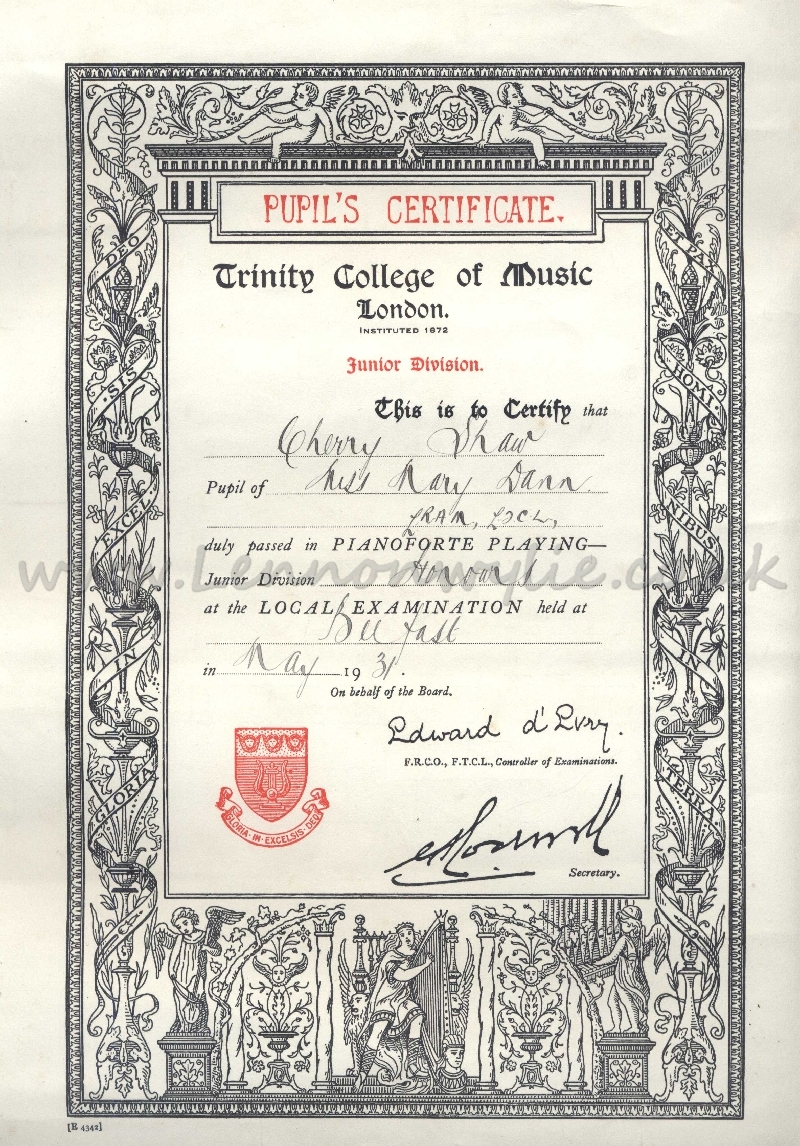 PUPIL'S CERTIFICATE.
Trinity College of Music
London.
INSTITUTED 1872
Junior Division.
This is to Certify that
Cherry Shaw
Pupil of Miss Mary Dann
LRAM, LTCL,
duly passed in PIANOFORTE PLAYING—
Junior Division Honours
at the LOCAL EXAMINATION held at
Belfast
in May 1931.
On behalf of the Board.
Edward d'Evry.
F.R.C.O., F.T.C.L., Controller of Examinations.
Secretary.
GLORIA·IN·EXCELSIS·DEO
GLORIA
IN
EXCEL
SIS
DEO
ET PAX
HOMI
NIBUS
IN
TERRA
www.Lennonwylie.co.uk
[E 4342]